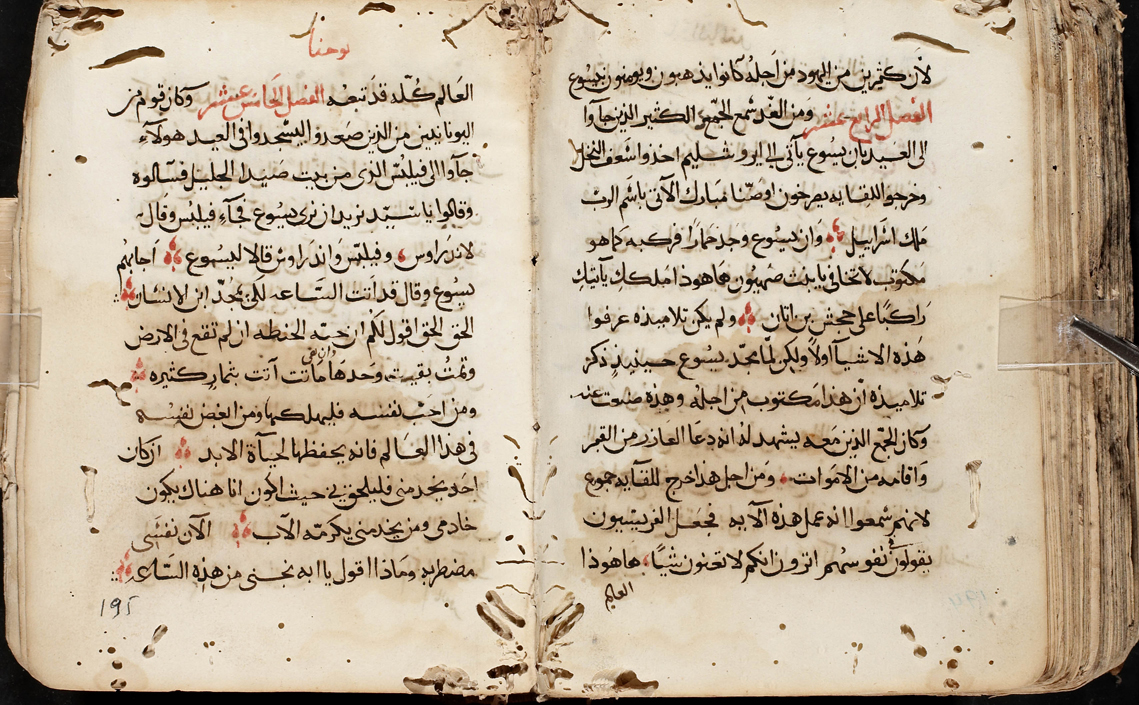 لان كثيرين من اليهود من اجله كانوا يذهبون ويومنون بيسوع
الفصل الرابع عشر ومن الغد سمع الجمع الكثير الذين جاوا
الى العيد بان يسوع يأتي الى ايروشليم اخذوا سعف النخل
وخرجوا للقايه يصرخون اوصنا مبارك الاتي باسم الرب
ملك اسراييل وان يسوع وجد حمارا فركبه كما هو
مكتوب لا تخافي يا بنت صهيون هاهوذا ملكك ياتيك
راكبا على جحش بن اتان ولم يكن تلاميذه عرفوا
هذه الاشيآ اولا ولكن لما مجد يسوع حينيذ ذكر
تلاميذه ان هذا مكتوب من اجله وهذه صنعت عنه
وكان الجمع الذين معه يشهد له انه دعا العازر من القبر
واقامه من الاموات ومن اجل هذا خرج للقايه جموع
لانهم سمعوا انه عمل هذه الآيه فجعل الفريسيون
يقولون في نفوسهم اترون انكم لا تغنون شيا هاهوذا
العالم
يوحنا
العالم كله قد تبعه الفصل الخامس عشر وكان قوم من
اليونانيين من الذين صعدوا ليسجدوا في العيد هولآء
جآوا الى فيلبس الذي من بيت صيدا الجليل فسالوه
وقالوا يا سيد نريد ان نرى يسوع فجآء فيلبس وقال
لاندراوس وفيلبس واندراوس قالا ليسوع اجابهم
يسوع وقال قد اتت الساعه لكي يمجد ابن الانسان
الحق الحق اقول لكم ان حبة الحنطه ان لم تقع في الارض
وتمت بقيت وحدها وان هي ماتت آتت بثمار كثيره
ومن احب نفسه فليهلكها ومن ابغض نفسه
في هذا العالم فانه يحفظها لحياة الابد ان كان
احد يخدمني فليلحق بي حيث اكون انا هناك يكون
خادمي ومن يخدمني يكرمه الآب الآن نفسي
مضطربه وماذا اقول يا ابه نجني من هذه الساعه
195